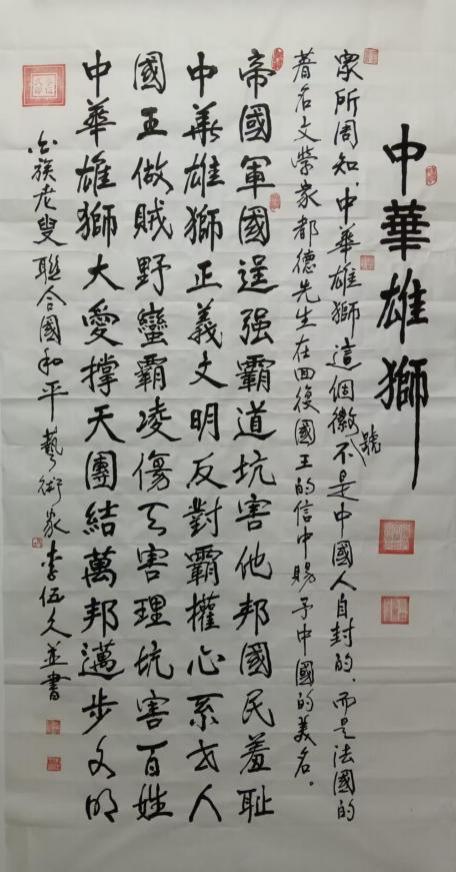 中華雄獅
眾所周知，中華雄獅這個徽號不是中國人自封的，而是法國的
著名文學家都德先生在回復國王的信中賜予中國的美名。
帝國軍國逞强霸道坑害他邦國民羞恥
中華雄獅正義文明反對霸權心系世人
國王做賊野蠻霸凌傷天害理坑害百姓
中華雄獅大愛撑天團結萬邦邁步文明
白族老叟聯合國和平藝術家李伍久並書